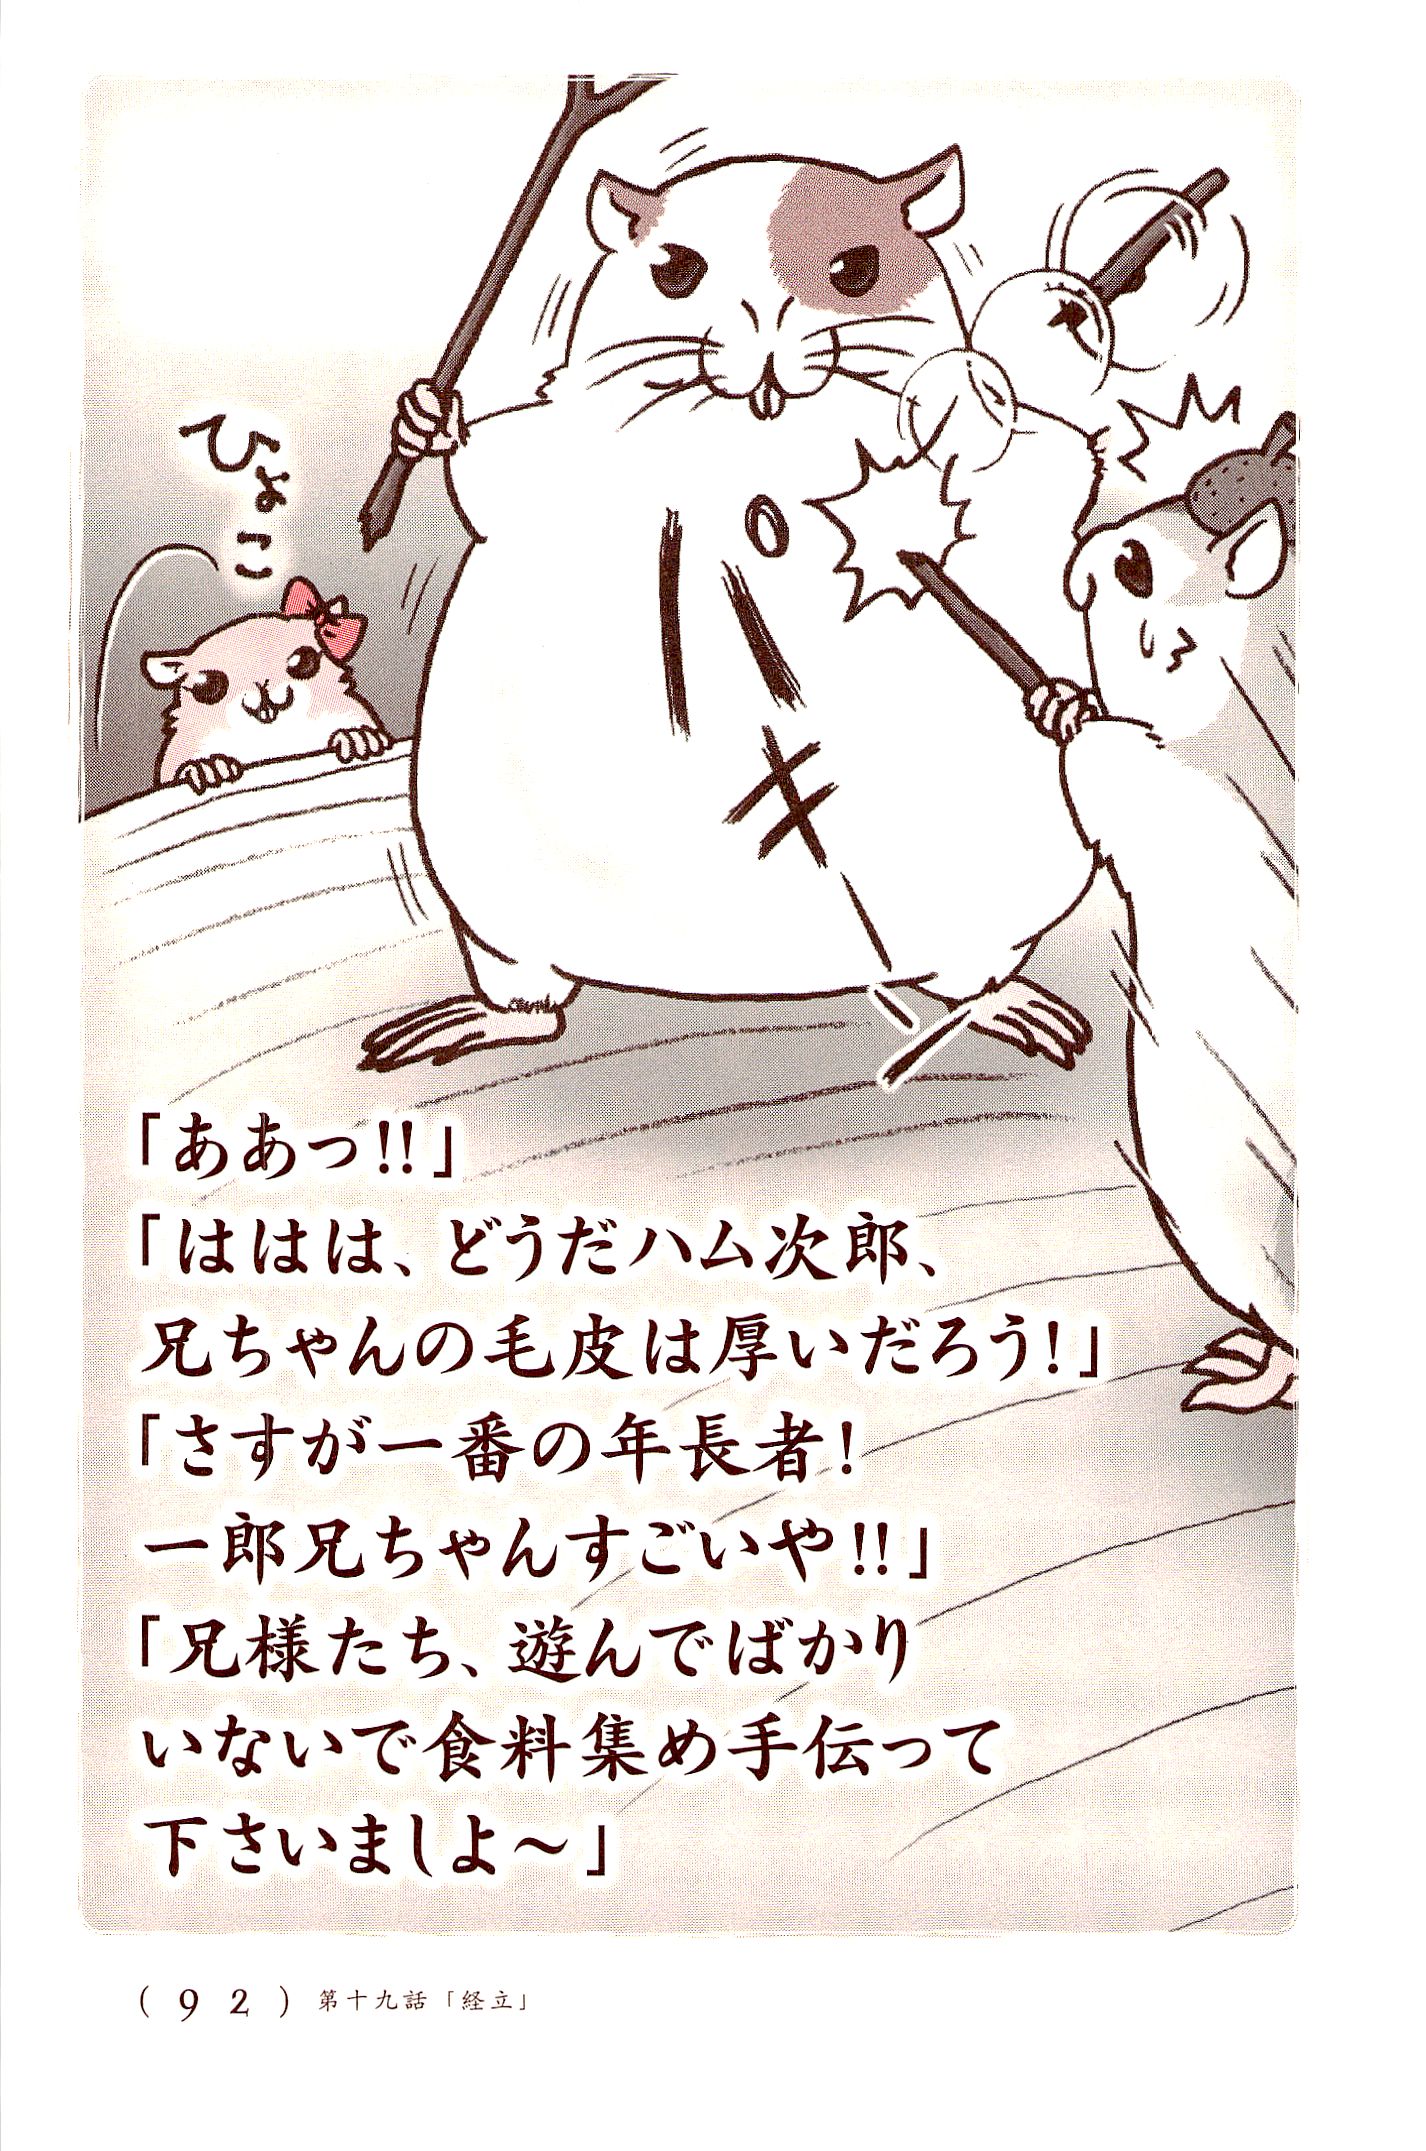 ひょこ
バキ
「ああっ!!」
「ははは、どうだハム次郎、
兄ちゃんの毛皮は厚いだろう!」
「さすが一番の年長者!
一郎兄ちゃんすごいや!!」
「兄様たち、遊んでばかり
いないで食料集め手伝って
下さいましよ〜」
(92) 第十九話「経立」